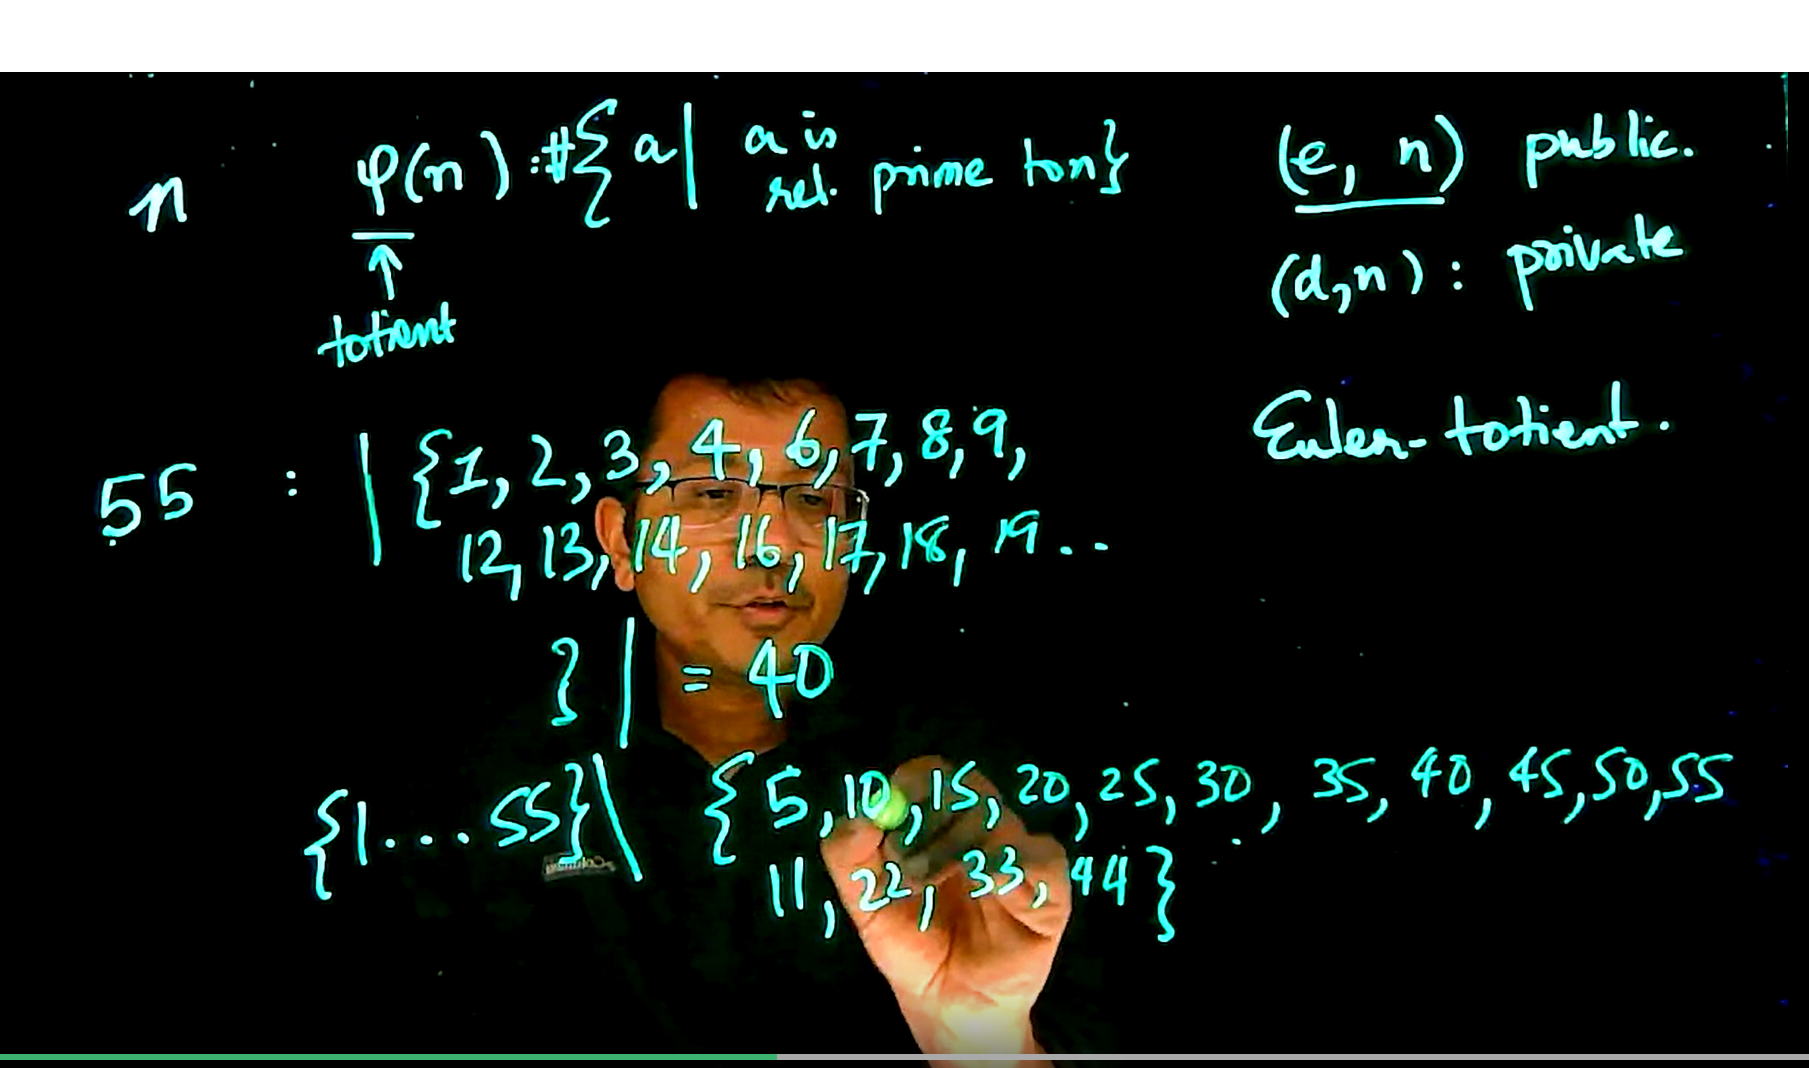 n φ(n) :#{ a | a is rel. prime to n}
(e, n) public.
↑
totient
(d,n) : private
Euler-totient.
55 : | {1, 2, 3, 4, 6, 7, 8, 9,
12, 13, 14, 16, 17, 18, 19..
} | = 40
{1...55} \ {5, 10, 15, 20, 25, 30, 35, 40, 45, 50, 55
11, 22, 33, 44}